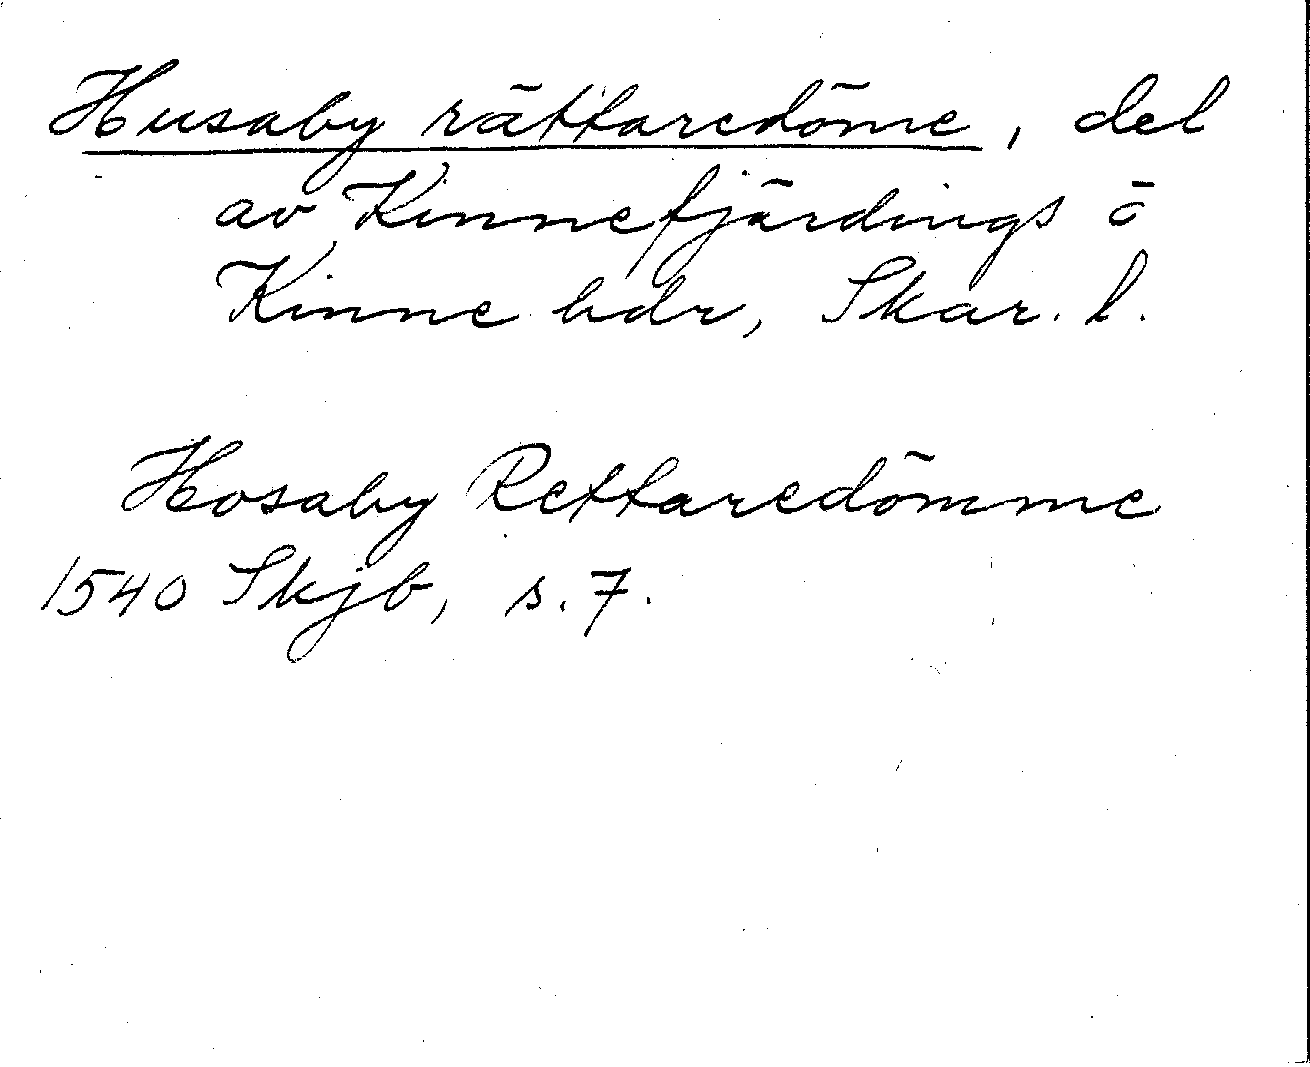 Husaby rättaredöme, del
av Kinnefjärdings o
Kinne hdr, Skar. l.
Hosaby Rettaredömme
1540 Skjb, s. 7.